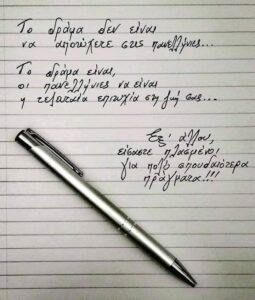 Το δράμα δεν είναι
να αποτύχετε στις πανελλήνιες...
Το δράμα είναι,
οι πανελλήνιες να είναι
η τελευταία επιτυχία στη ζωή σας...
Εξ' άλλου,
είσαστε πλασμένοι
για πολύ σπουδαιότερα
πράγματα!!!